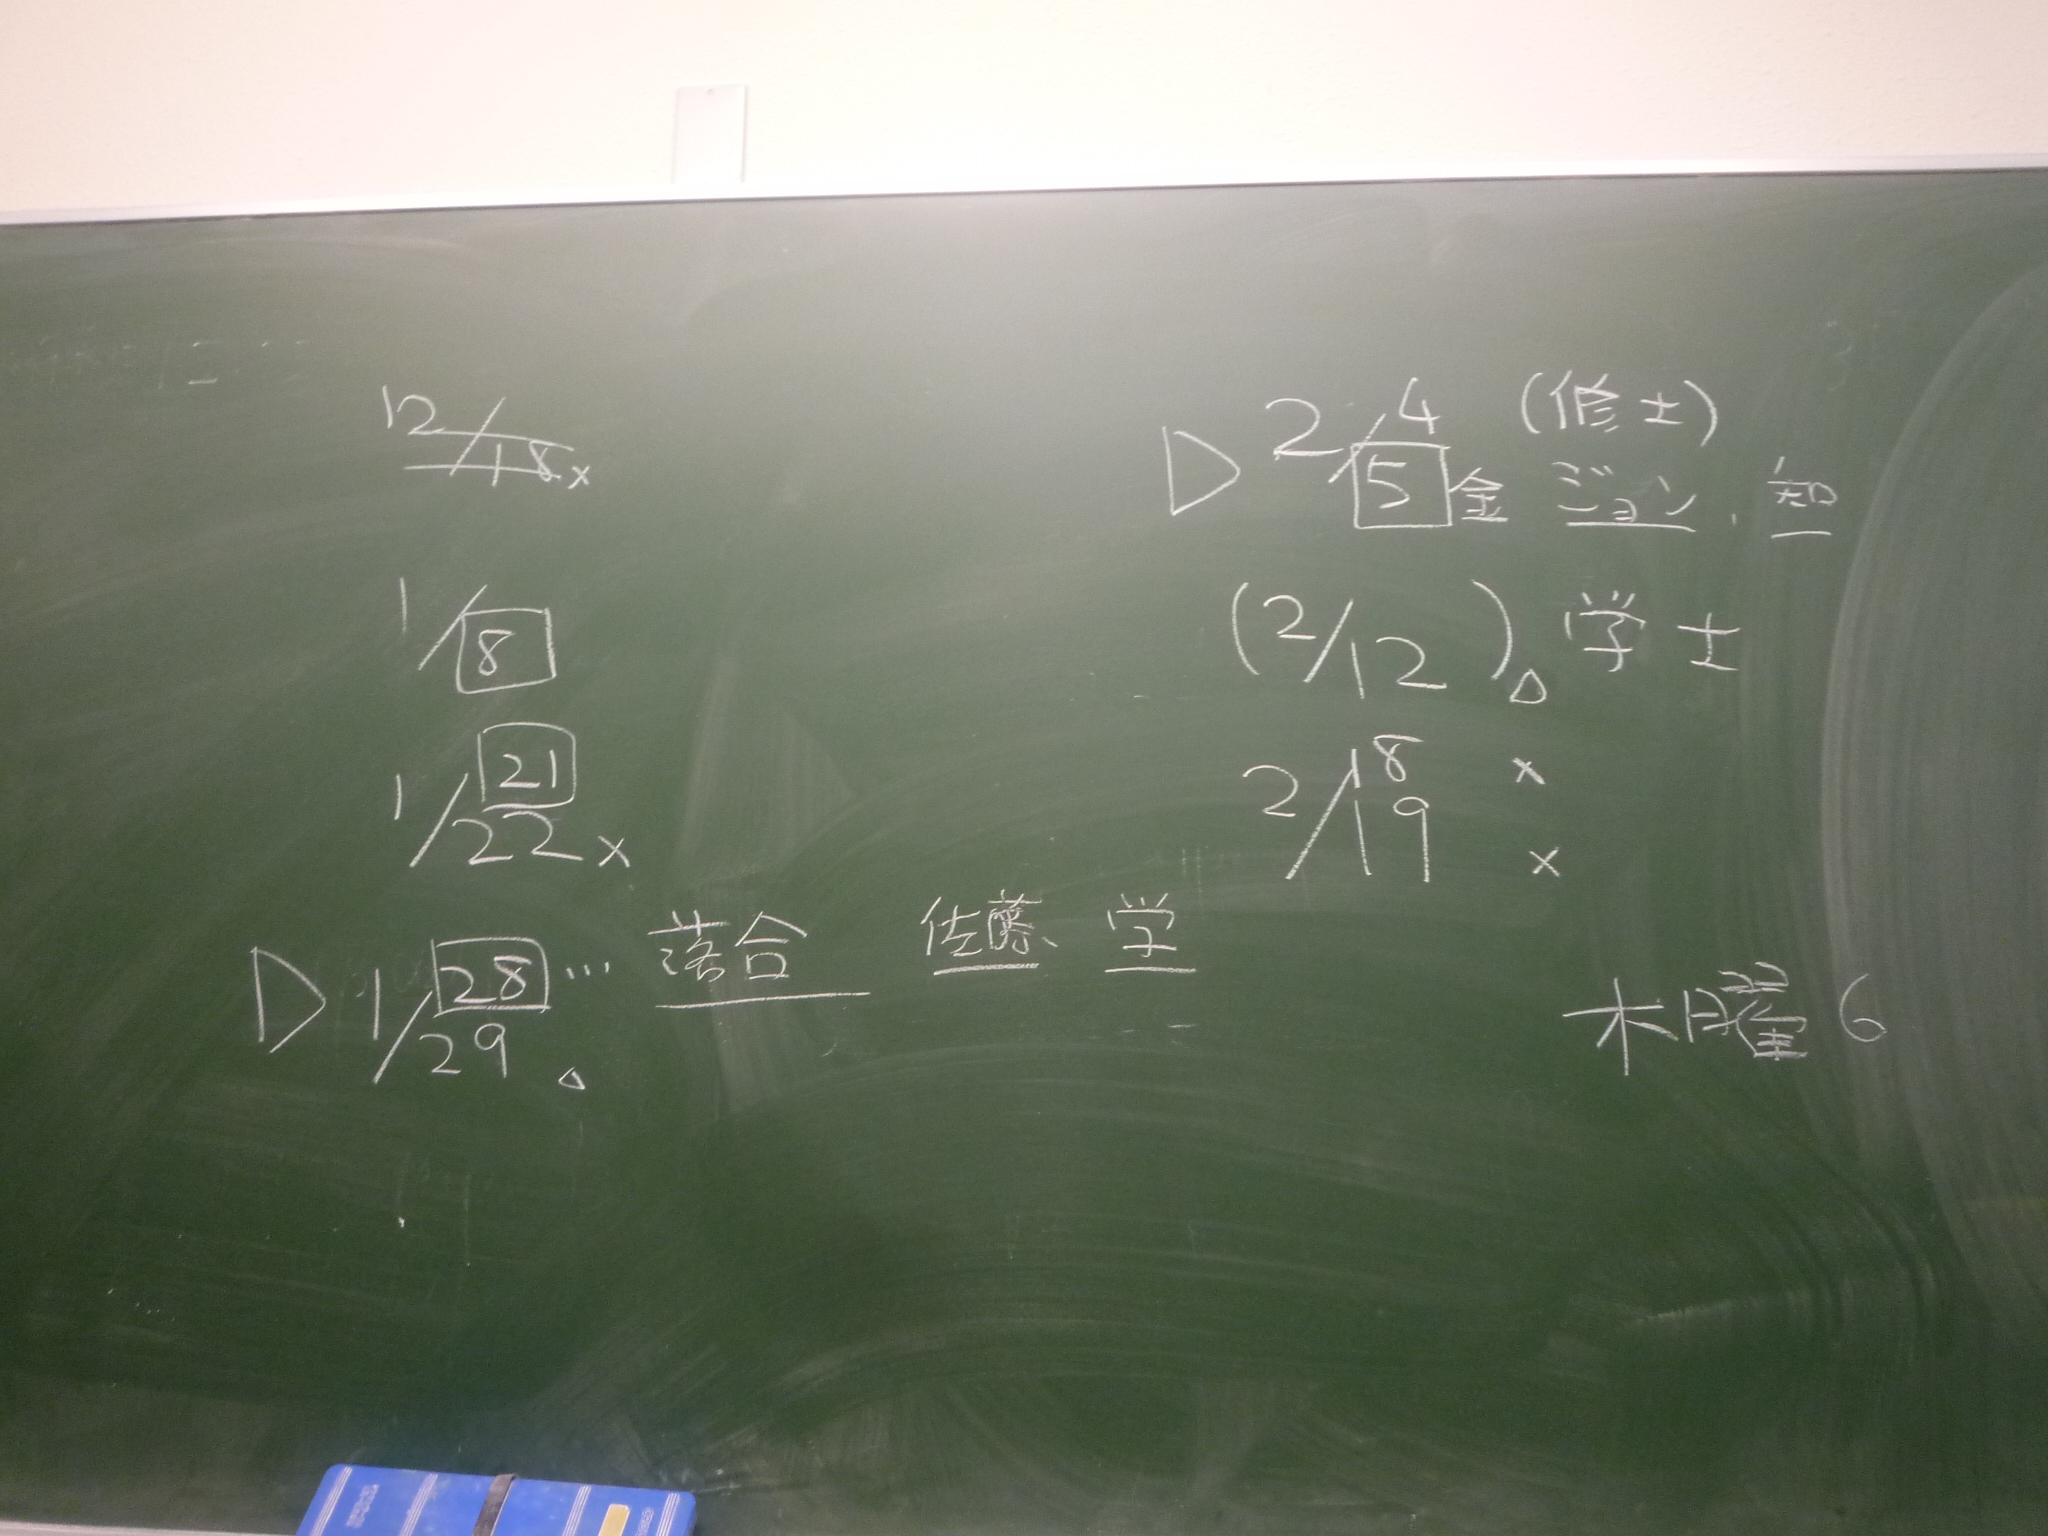 12/18 x
1/8
1/21
22 x
D 1/28 … 落合 佐藤 学
29 △
D 2/4 (修士)
5 金 ジョン、知
(2/12) △ 学士
2/18 x
19 x
木曜 6